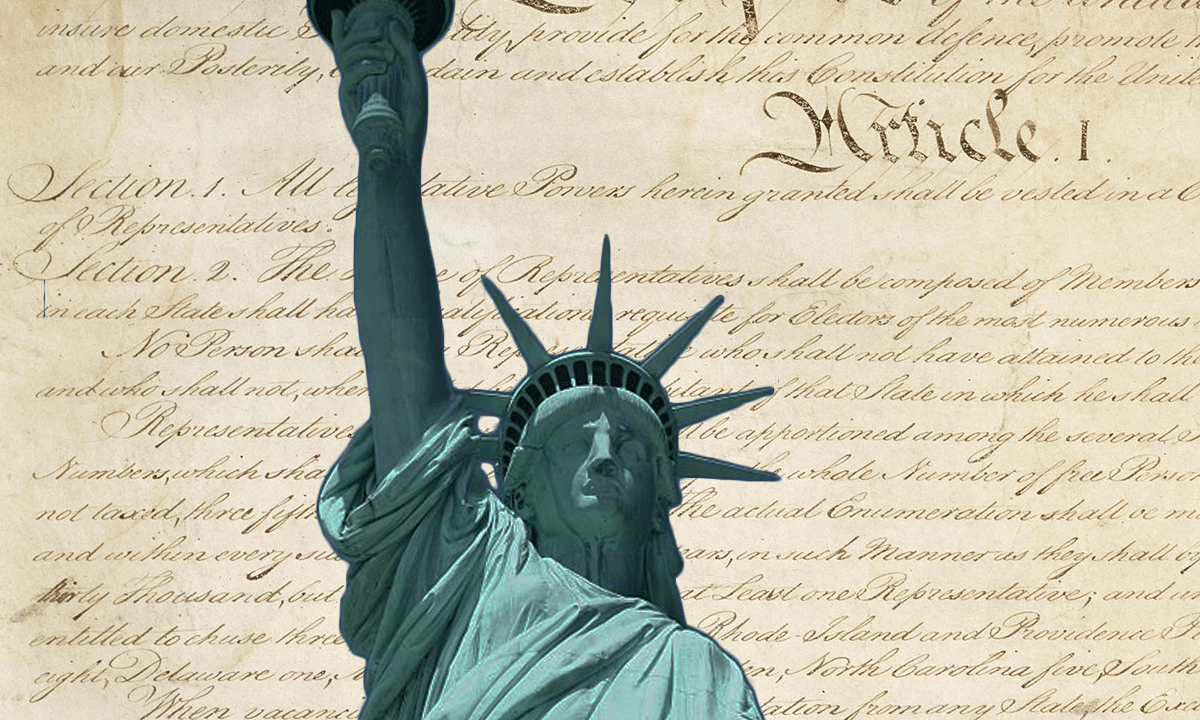 of the United
insure domestic lity, provide for the common defence, promote
and our Posterity, dain and establish this Constitution for the Unite
Article. I.
Section. 1. All l ative Powers herein granted shall be vested in a C
of Representatives.
Section. 2. The e of Representatives shall be composed of Members
in each State shall ha alifications requisite for Electors of the most numerous
No Person shal Rep who shall not have attained to the
and who shall not, when itant of that State in which he shall
Representatives be apportioned among the several
Numbers, which sha whole Number of free Perso
not taxed, three fifth The actual Enumeration shall be m
and within every su ears, in such Manner as they shall
thirty Thousand, but at Least one Representative; and
entitled to chuse thre Rhode-Island and Providence P
eight, Delaware one, en, North Carolina five, South
When vacanc tation from any State, the Exe